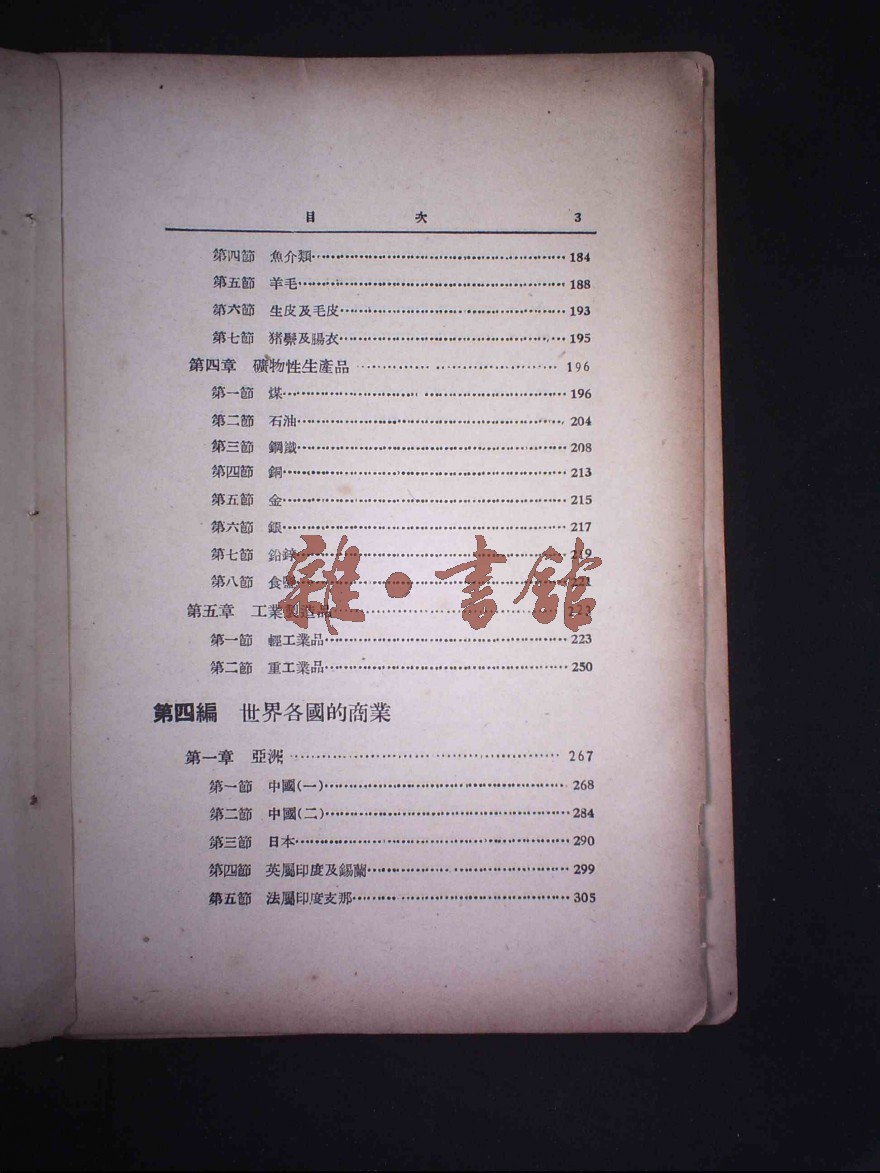 目 次 3
第四節 魚介類 184
第五節 羊毛 188
第六節 生皮及毛皮 193
第七節 猪鬃及腸衣 195
第四章 礦物性生產品 196
第一節 煤 196
第二節 石油 204
第三節 鋼鐵 208
第四節 銅 213
第五節 金 215
第六節 銀 217
第七節 鉛鋅 219
第八節 食鹽 221
第五章 工業製造品 223
第一節 輕工業品 223
第二節 重工業品 250
雜·書館
第四編 世界各國的商業
第一章 亞洲 267
第一節 中國(一) 268
第二節 中國(二) 284
第三節 日本 290
第四節 英屬印度及錫蘭 299
第五節 法屬印度支那 305